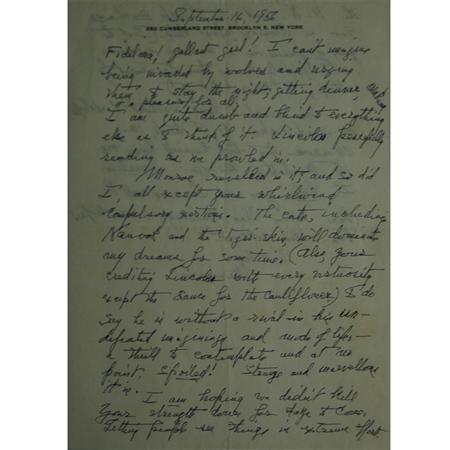 September 16, 1956
260 CUMBERLAND STREET, BROOKLYN 5, NEW YORK
Fidelma, gallant girl! I can't imagine
being invaded by wolves and urging
them to stay the night, getting dinner,
a pleasure for all.
I am quite dumb and blind to everything
else as I think of it. Lincoln peacefully
reading as we prowled in.
Monroe revelled in it, and so did
I, all except your whirlwind
compulsory exertions. The cats, including
and the tiger skin, will dominate
my dreams for some time. (Also your
crediting Lincoln with every virtuosity
except the sauce for the cauliflower) I do
say he is without a rival in his un-
defeated imaginings and mode of life—
a thrill to contemplate and at no
point, spoiled! Strange and marvellous
it is.
I am hoping we didn't kill
your strength down for days to come,
letting people see things is extreme effort